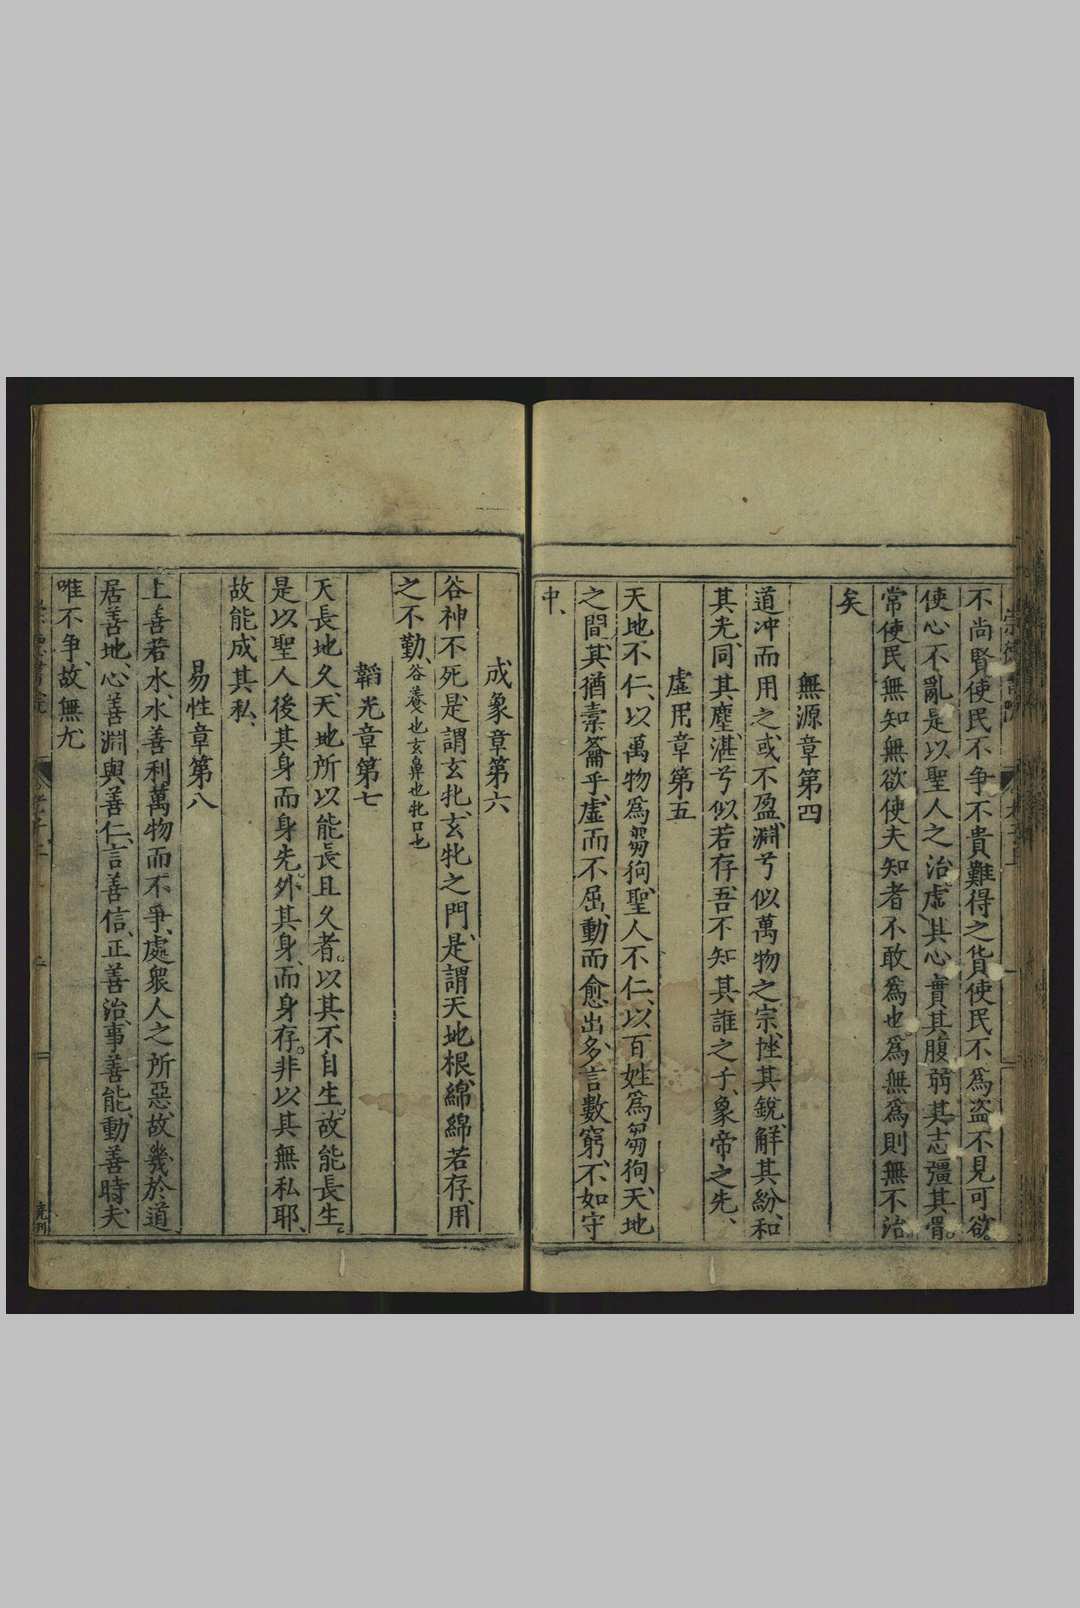 不尚賢使民不争不貴難得之貨使民不爲盗不見可欲。
使心不亂是以聖人之治虚其心實其腹弱其志彊其骨。
常使民無知無欲使夫知者不敢爲也。爲無爲則無不治
矣
無源章第四
道冲而用之、或不盈、淵兮似萬物之宗、挫其銳、解其紛、和
其光、同其塵、湛兮似若存、吾不知其誰之子、象帝之先、
虛用章第五
天地不仁、以萬物爲芻狗、聖人不仁、以百姓爲芻狗、天地
之間、其猶橐籥乎、虛而不屈、動而愈出、多言數窮、不如守
中、
成象章第六
谷神不死、是謂玄牝、玄牝之門、是謂天地根、綿綿若存、用
之不勤、谷養也玄鼻也牝口也
韜光章第七
天長地久、天地所以能長且久者。以其不自生。故能長生。
是以聖人後其身而身先。外其身、而身存。非以其無私耶、
故能成其私、
易性章第八
上善若水、水善利萬物而不爭、處衆人之所惡、故幾於道
居善地、心善淵、與善仁、言善信、正善治、事善能、動善時、夫
唯不争、故無尤